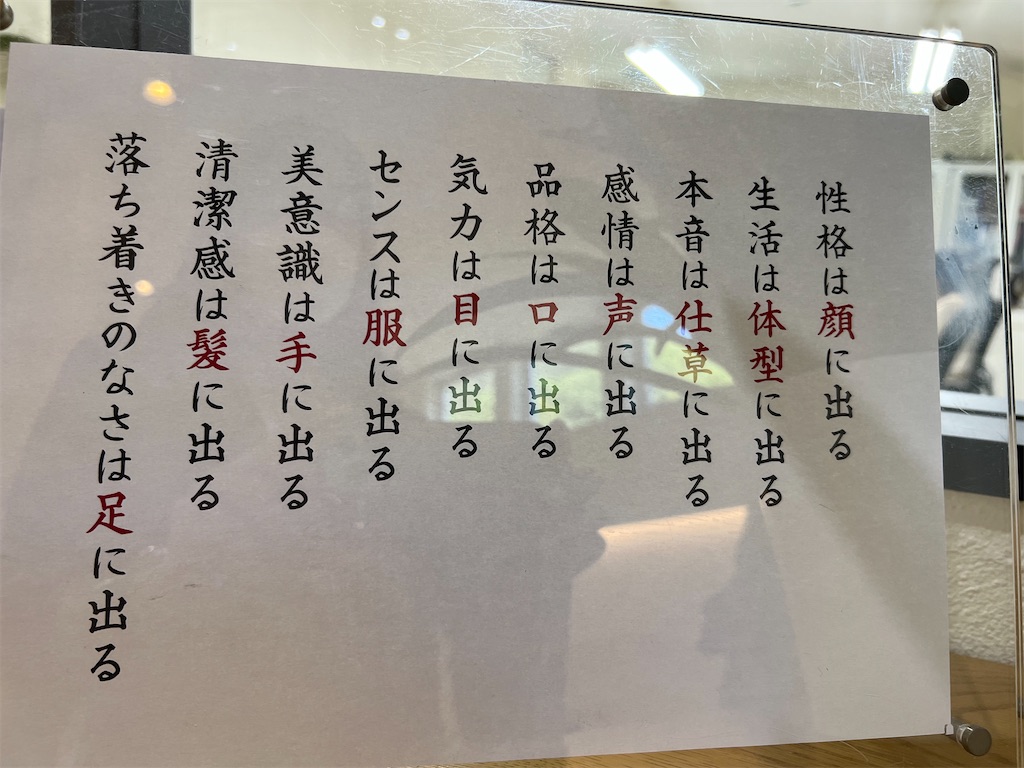 性格は顔に出る
生活は体型に出る
本音は仕草に出る
感情は声に出る
品格は口に出る
気力は目に出る
センスは服に出る
美意識は手に出る
清潔感は髪に出る
落ち着きのなさは足に出る